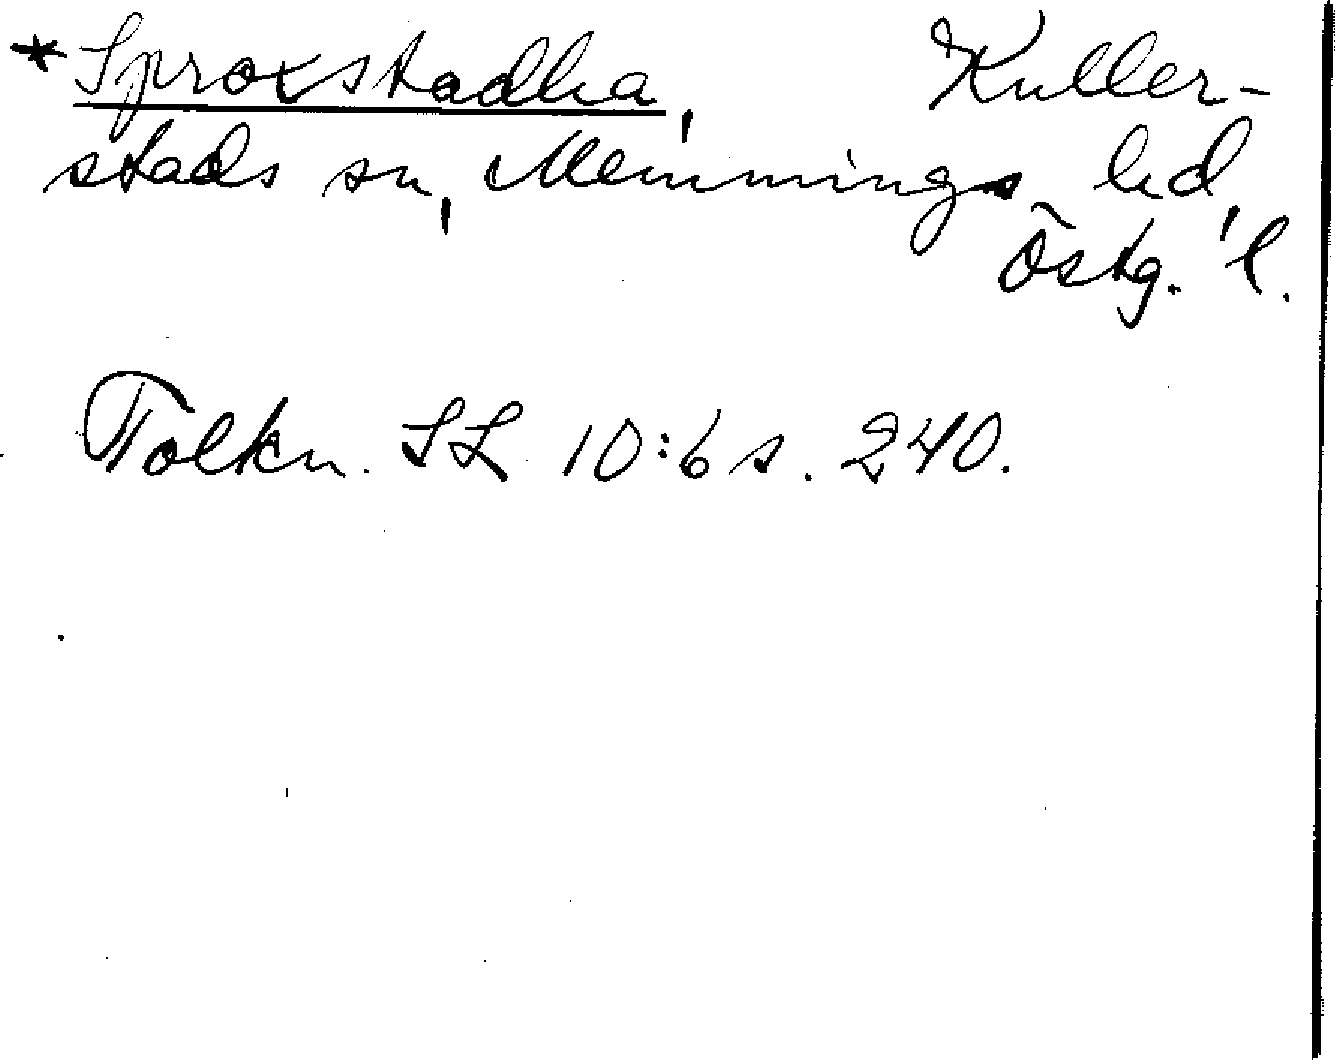 *Sproxstadha, Kuller-
stads sn, Memmings hd,
Östg. l.
Tolkn. SL 10:6 s. 240.